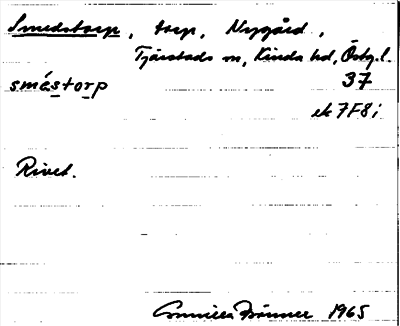 Smedstorp, torp, Nygård,
Tjärstads sn, Kinda hd, Östg.l.
smėstorp 37
ek 7F8i
Rivet.
Gunilla Brönner 1965